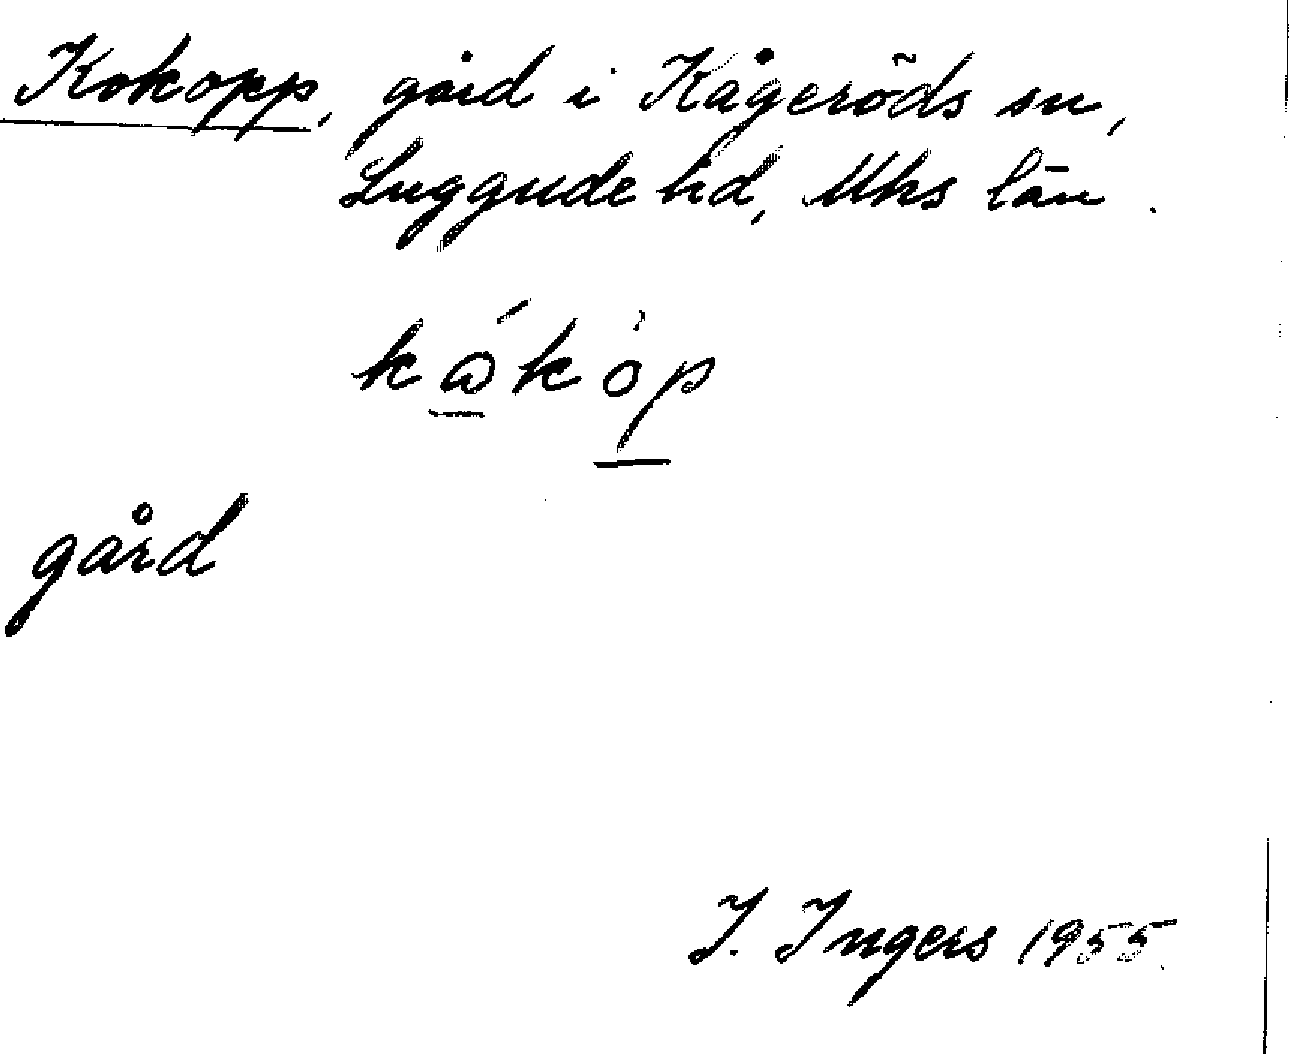 Kokopp, gård i Kågeröds sn,
Luggude hd, Mhs län.
gård
I. Ingers 1955.